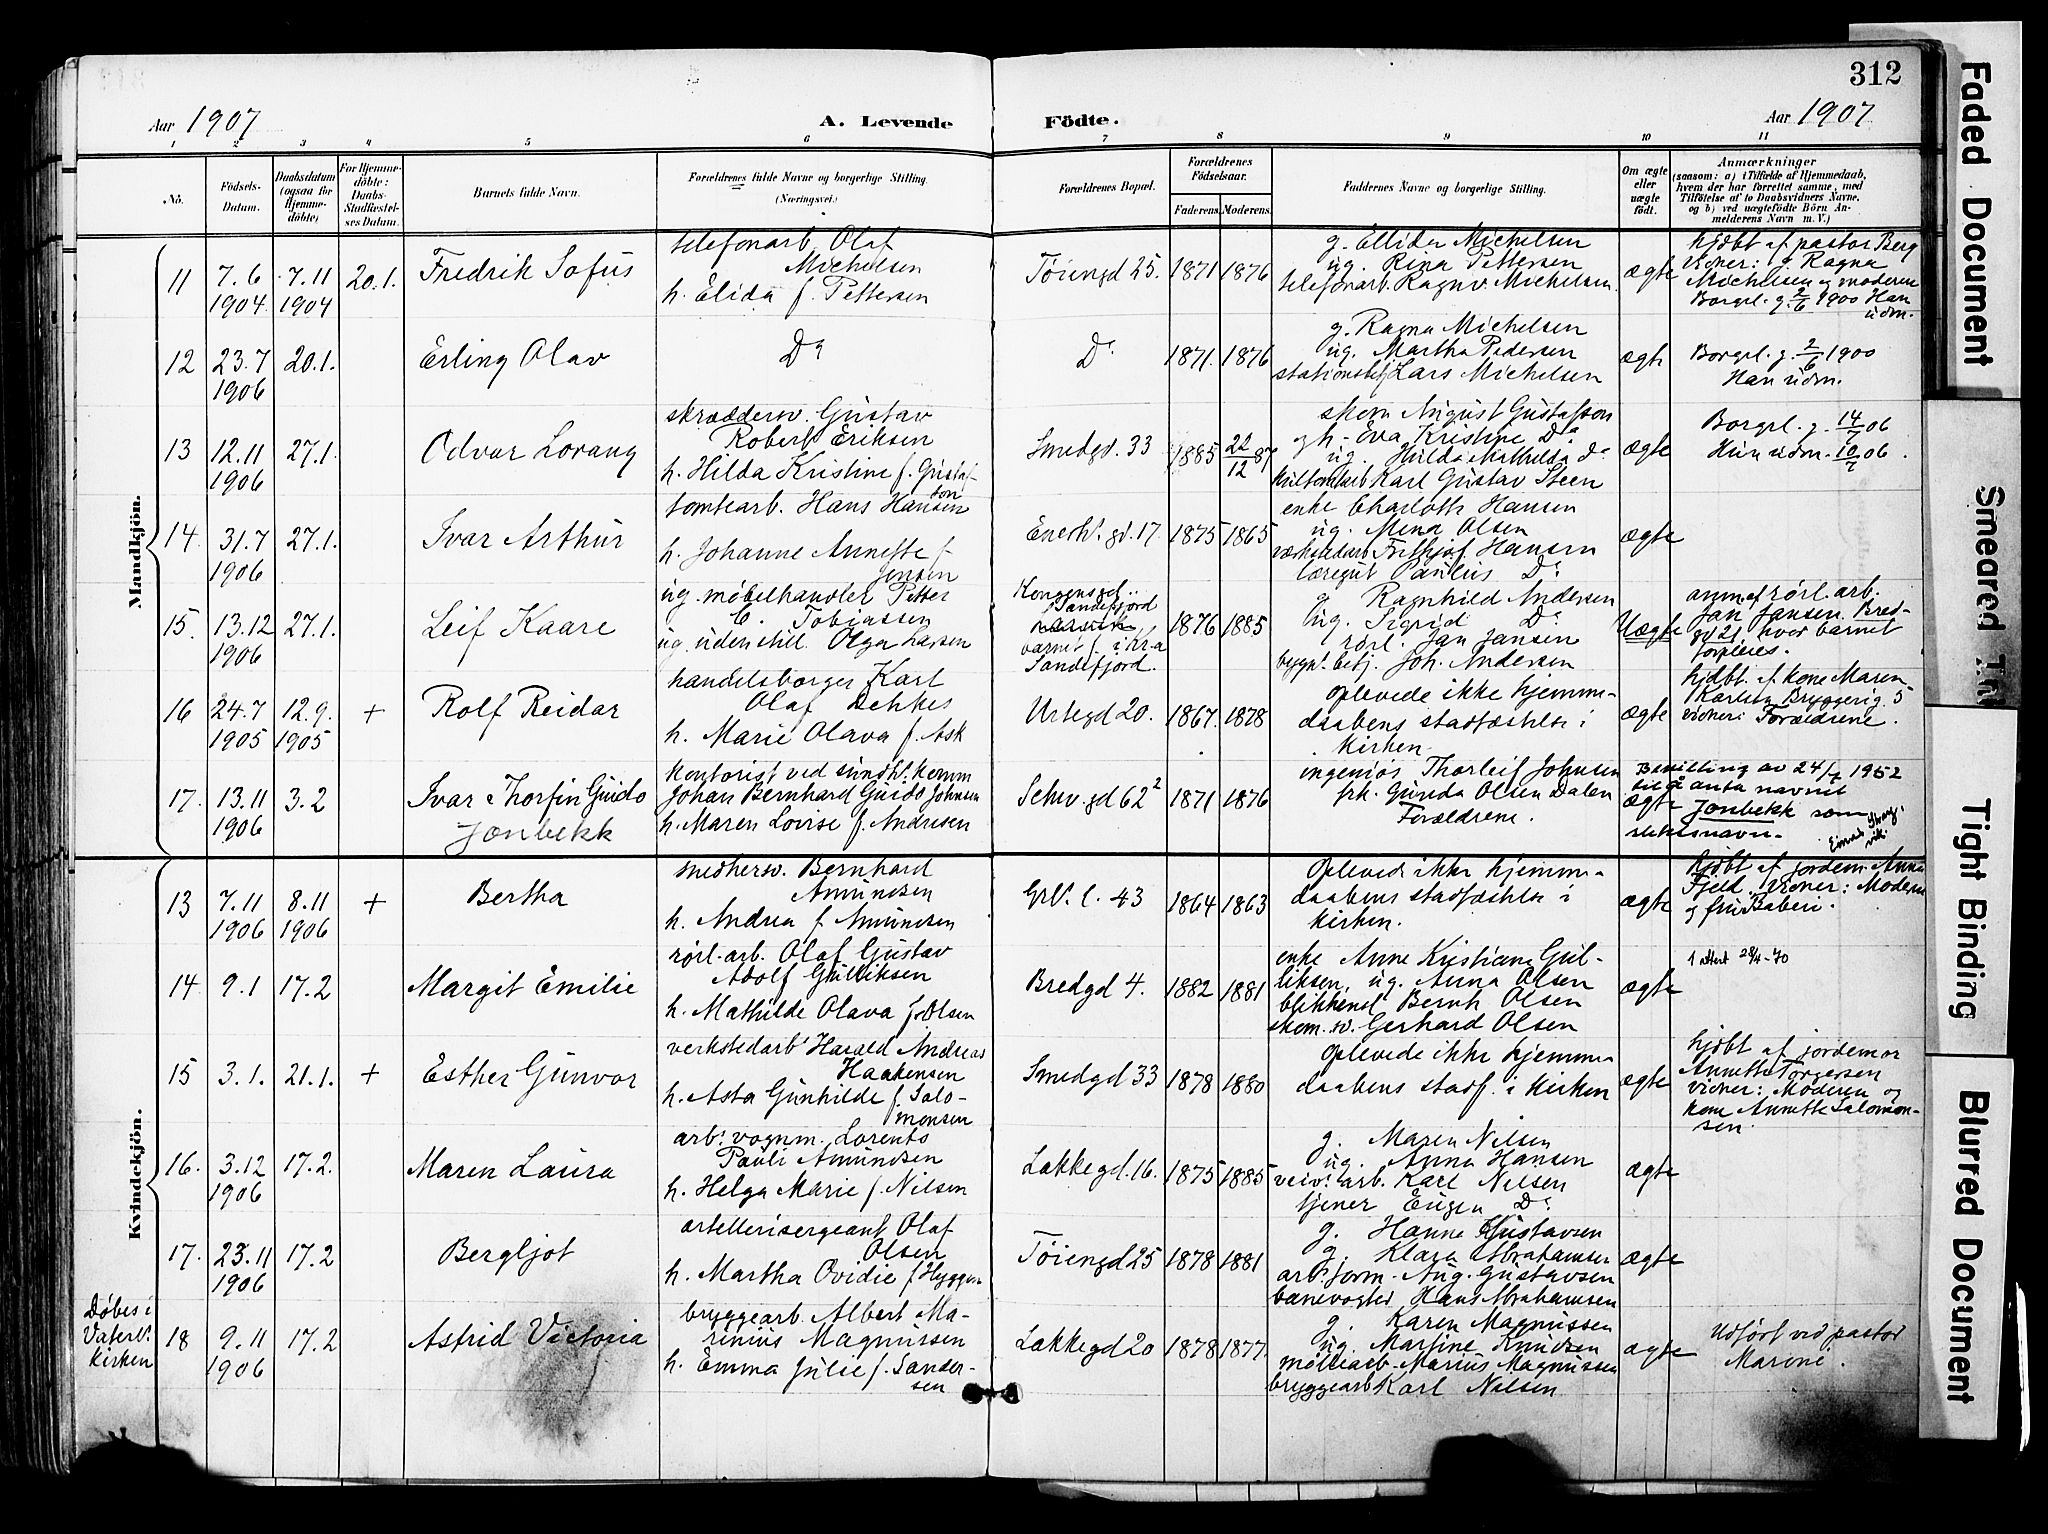 312
Aar 1907
A. Levende Födte.
Aar 1907
1 2 3 4 5 6 7 8 9 10 11
No.
Födsels-Datum.
Daabsdatum (ogsaa for Hjemme-döbte)
For Hjemme-döbte: Daabs-Stadfæstel-ses Datum.
Barnets fulde Navn.
Forældrenes fulde Navne og borgerlige Stilling (Næringsvei.)
Forældrenes Bopæl.
Forældrenes Födselsaar.
Faderens. Moderens.
Faddernes Navne og borgerlige Stilling.
Om ægte eller uægte födt.
Anmærkninger
(saasom: a) i Tilfælde af Hjemmedaab, hvem der har forrettet samme, med Tilföielse af to Daabsvidners Navne, og b) ved uægtefödte Börn Anmelderens Navn m. V.)
Mandkjön.
11
7.6 1904
7.11 1904
20.1.
Fredrik Sofus
telefonarb. Olaf
Michelsen
h. Elida f. Pettersen
Töiengd 25.
1871
1876
g. Ellida Michelsen
ug. Rina Pettersen
telefonarb. Ragnv. Michelsen
ægte
hjdbt af pastor Berg
vidner: g. Ragna
Michelsen og moderen
Borgvl. g. 2/6 1900 Han
udm.
12
23.7 1906
20.1.
Erling Olav
Do
Do
1871.
1876
g. Ragna Michelsen
ug. Martha Pedersen
stationsbetj Lars Michelsen
ægte
Borgvl. g. 2/6 1900
Han udm.
13
12.11 1906
27.1.
Odvar Lorang
skræddersv. Gustav
Robert Eriksen
h. Hilda Kristine f. Gustaf-
son
Smedgd. 33
1885
22/12 87
skom August Gustafsson
og h. Eva Kristine Do
ug. Hulda Mathilda Do
Karl Gustav Steen
ægte
Borgvl. g. 14/7 06
Hun udm. 10/7 06.
14.
31.7 1906
27.1.
Ivar Arthur
tomtearb. Hans Hansen
h. Johanne Annette f.
Jensen
Enerh. gd. 17
1875
1865
enke Charlotte Hansen
ug. Mena Olsen
værkstedarb Frithjof Hansen
læregut Paulus Do
ægte
15.
13.12 1906
27.1.
Leif Kaare
ug. möbelhandler Petter
C. Tobiassen
ug. uden still. Olga Larsen
Kongensgd..
Sandefjord
barnet f. i Kr.a
Sandefjord.
1876
1885
g. Ragnhild Andersen
ug. Sigrid Do
rörl. Jan Jansen
bygn. betj. Joh. Andersen
Uægte
anm af rörl. arb.
Jan Jansen Bred-
gd 21 hvor barnet
forpleies.
16
24.7 1905
12.9. 1905
+
Rolf Reidar
handelsborger Karl
Olaf Dehkes
h. Marie Olava f. Ask
Urtegd 20.
1867.
1878
oplevede ikke hjemme-
daabens stadfæstelse i
kirken.
ægte
hjdbt. af kone Maren
Karlsen Bryggerig. 5
vidner: Forældrene.
17.
13.11 1906
3.2
Ivar Thorfin Guido
Jonbekk
kontorist ved sundh. komm
Johan Bernhard Guido Johnsen
h. Maren Lovise f. Andresen
Schw. gd 62²
1871
1876
ingeniör Thorleif Johnsen
frk. Gunda Olsen Dalen
Forældrene.
ægte
Bevilling av 24/7 1952
til å anta navnet
Jonbekk som
slektsnavn.
Kvindekjön.
13
7.11 1906
8.11 1906
+
Bertha
smedsv. Bernhard
Amundsen
h. Andrea f. Amundsen
Grl. l. 43
1864
1863
Oplevede ikke hjemme-
daabens stadfæstelse i
kirken.
ægte
hjdbt af jordem. Anna
Fjeld. Vidner: Moderen
og fru Baberi.
14.
9.1
17.2
Margit Emilie
rörl. arb. Olaf Gustav
Adolf Gulliksen
h. Mathilde Olava f. Olsen
Bredgd 4.
1882
1881
enke Anne Kristiane Gul-
liksen, ug. Anna Olsen
blikkensl Bernh Olsen
skom. sv. Gerhard Olsen
ægte
1 attest 28/4-70
15
3.1.
21.1.
+
Esther Gunvor
verkstedarb Harald Andreas
Haakensen
h. Asta Gunhilde f. Salo-
monsen
Smedgd 33
1878
1880
oplevede ikke hjemme-
daabens stadf. i kirken
ægte
hjdbt af jordemor
Annette Torgersen
vidner: Moderen og
kone Annette Salomon-
sen.
16.
3.12 1906
17.2.
Maren Laura
arb. vognm. Lorents
Pauli Amundsen
h. Helga Marie f. Nilsen
Lakkegd. 16.
1875
1885
g. Maren Nilsen
ug. Anna Hansen
veiv. arb. Karl Nilsen
tjener Eugen Do
ægte
17.
23.11 1906
17.2
Bergljot
artellerisergeant Olaf
Olsen
h. Martha Ovidie f. Hyggen
Töiengd 25
1878
1881
g. Hanna Gustavsen
g. Klara Abrahamsen
arb. form. Aug. Gustavsen
banevogter Hans Abrahamsen
ægte
Döbes i
Vaterl.
kirken
18
9.11 1906
17.2
Astrid Victoria
bryggearb. Albert Ma-
rinius Magnussen
h. Emma Julie f. Sander-
sen
Lakkegd 20
1878
1877.
g. Karen Magnussen
ug. Martine Knudsen
möllearb. Marius Magnussen
bryggearb Karl Nilsen
ægte
Udfört ved pastor
Marine.
Faded Document
Smeared
Tight Binding
Blurred Document